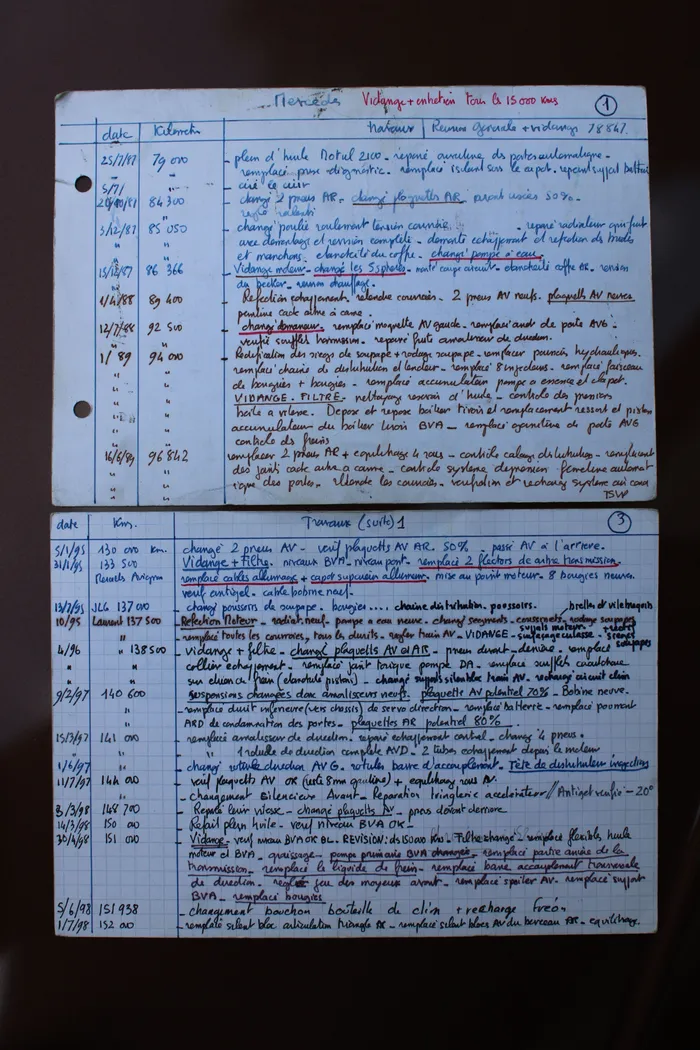 Mercedes Vidange + entretien tous les 15 000 kms 1
date Kilométr travaux Revision Générale + vidange 78841
25/7/87 79 000 - plein d'huile Motul 2100 - réparé ouverture des portes automatique -
" remplacé prise diagnostic - remplacé isolant sous le capot - réparé support batterie
ciré le cuir
84 300 - changé 2 pneus AR - changé plaquettes AR 50% -
réglé ralenti
3/12/87 85 050 - changé poulie roulement tension courroie - réparé radiateur qui fuit
" avec démontage et révision complète - démonté échappement et réfection des brides
" et manchons - étanchéité du coffre - changé pompe à eau
15/12/87 86 366 - Vidange moteur - changé les 5 sphères - monté coupe circuit - étanchéité coffre AR - révision
du Becker - révision chauffage -
1/4/88 89 400 - Réfection échappement - retendre courroies - 2 pneus AV neufs - plaquettes AV neuves
peinture cache arbre à came -
12/7/88 92 500 - changé démarreur - remplacé moquette AV gauche - remplacé de porte AVG -
" - vérifié soufflet transmission - réparé fuite amortisseur de direction -
1/89 94 000 - Rectification des sièges de soupape + rodage soupape - remplacer poussoirs hydrauliques -
" remplacé chaine de distribution et tendeur - remplacé 8 injecteurs - remplacé faisceau
" de bougies + bougies - remplacé accumulateur pompe à essence et clapet -
" VIDANGE - FILTRE - nettoyage réservoir d'huile - contrôle des pressions
" boite à vitesse - Dépose et repose boitier tiroir et remplacement ressort et piston
" accumulateur du boitier tiroir BVA - remplacé de porte AVG
" contrôle des freins
16/6/89 96 842 remplacer 2 pneus AR + équilibrage 4 roues - contrôle calage distribution - remplacement
" des joints cache arbre à came - contrôle système dépression fermeture automat
" ique des portes - Retendre les courroies -
TSVP
date Km. Travaux (suite) 1 3
5/1/95 130 000 km. changé 2 pneus AV - vérif plaquettes AV AR 50% - passé AV à l'arrière.
31/1/95 133 500 Vidange + Filtre - niveaux BVA - niveau pont - remplacé 2 flectors de arbre transmission.
remplacé cables allumage + capot supérieur allumeur - mise au point moteur - 8 bougies neuves.
vérif antigel - cable bobine neuf -
13/7/95 JLG 137 000 - changé poussoirs de soupape - bougies .... chaine distribution - poussoirs - bielles et vilebrequin
10/95 Laurent 137 500 Réfection Moteur - radiat. neuf - pompe à eau neuve - changé segments - coussinets - rodage soupapes
" - remplacé toutes les courroies, tous les durits - réglage train AV - VIDANGE - supports moteur - surfaçage culasse - sièges soupapes
4/96 " 138 500 - vidange + filtre - changé plaquettes AV et AR - pneus devant derrière - remplacé
" " collier échappement - remplacé joint torique pompe DA - remplacé soufflets caoutchouc
" " sur frein - changé support silentbloc train AV - recharge circuit clim
9/2/97 140 600 suspensions changées donc amortisseurs neufs - plaquettes AV potentiel 70% - Bobine neuve.
" - remplacé durit inférieure (vers chassis) de servo direction - remplacé batterie - remplacé poumont
ARD de condamnation des portes - plaquettes AR potentiel 80%
15/3/97 141 000 - remplacé amortisseur de direction - réparé échappement central - changé 4 pneus -
" " 1 rotule de direction complète AVD - 2 tubes échappement départ le moteur
1/6/97 " - changé rotule direction AVG - rotules barre d'accouplement - Tête de distributeur injections
11/7/97 144 000 - vérif plaquettes AV OK (reste 8mm garniture) + équilibrage roues AV.
" " - changement Silencieux Avant - Réparation tringlerie accélérateur // Antigel vérifié -20°
3/3/98 148 700 - Réparé levier vitesse - changé plaquettes AV - pneus devant derrière
14/3/98 150 000 - Refait plein huile - vérif niveau BVA OK -
30/4/98 151 000 Vidange - vérif niveau BVA OK BL - REVISION: des 150 000 km - Filtre changé - remplacé flexible, huile
moteur et BVA - graissage - pompe primaire BVA changée - remplacé partie arrière de la
transmission - remplacé le liquide de frein - remplacé barre accouplement transversale
de direction - réglé jeu des moyeux avant - remplacé spoiler AV - remplacé support
BVA - remplacé bougies
5/6/98 151 938 - changement bouchon bouteille de clim + recharge Fréon.
1/7/98 152 000 - remplacé silent bloc articulation triangle AR - remplacé silent blocs AV du berceau AR - équilibrage.